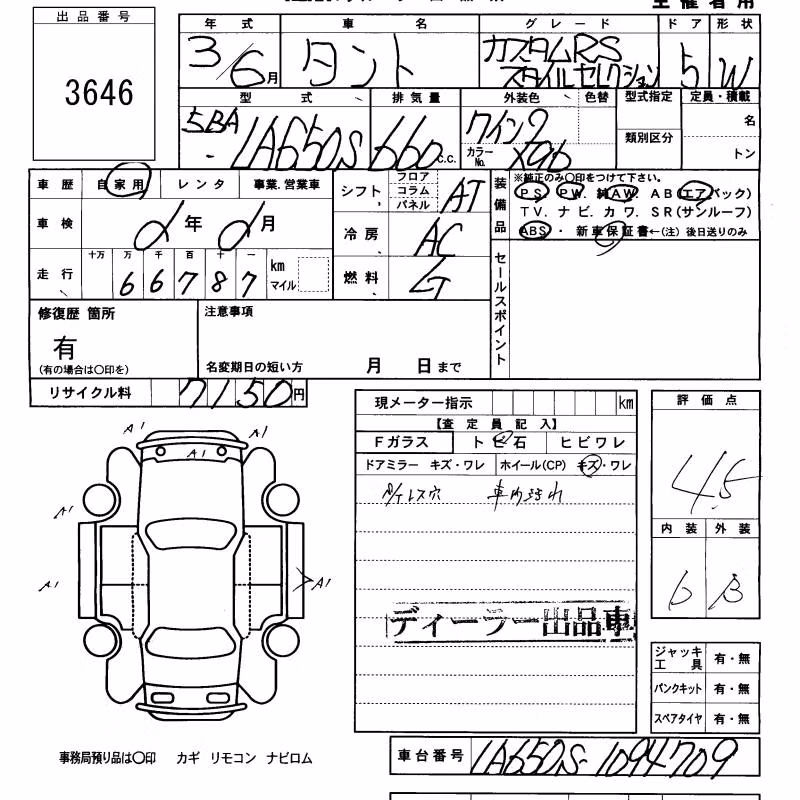 出品番号
3646
年式 車名 グレード ドア 形状
3/6月 タント カスタムRS スタイルセレクション 5 W
型式 排気量 外装色 色替 型式指定 定員・積載
5BA-LA650S 660c.c. ワイン7 カラーNo. X96 類別区分 名 トン
車歴 自家用 レンタ 事業.営業車
車検 年 月
走行 十万 万 千 百 十 一
66787 km マイル
シフト フロア コラム パネル AT
冷房 AC
燃料
装備品 ※純正のみ〇印をつけて下さい。
PS. PW. 純AW. AB(エアバック)
TV. ナビ. カワ. SR(サンルーフ)
ABS ・ 新車保証書←(注) 後日送りのみ
セールスポイント
修復歴 箇所
有
(有の場合は〇印を)
注意事項
名変期日の短い方 月 日まで
リサイクル料 7150円
現メーター指示 km
【査定員記入】
Fガラス トビ石 ヒビワレ
ドアミラー キズ・ワレ ホイール(CP) キズ・ワレ
内テレス穴 車内汚れ
ディーラー出品車
評価点
4.5
内装 外装
b B
A1 A1
A1
A1
A1 A1
ジャッキ工具 有・無
パンクキット 有・無
スペアタイヤ 有・無
事務局預り品は〇印 カギ リモコン ナビロム
車台番号 LA650S-1094709